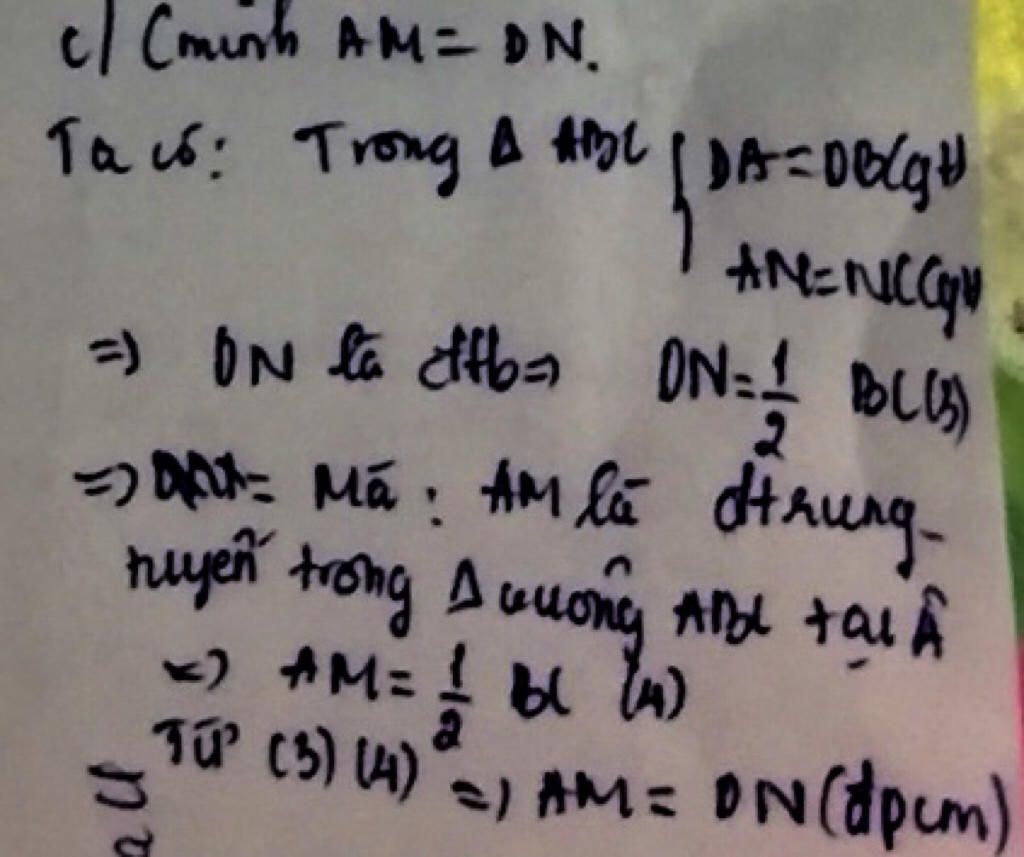 c/ Cminh AM = DN.
Ta có: Trong Δ ABC { DA = DB (gt)
AN = NC (gt)
=> DN là đtb => DN = 1/2 BC (3)
=> Mà : AM là đtrung
tuyến trong Δ vuông ABC tại Â
<=> AM = 1/2 BC (4)
Từ (3) (4) => AM = DN (đpcm)